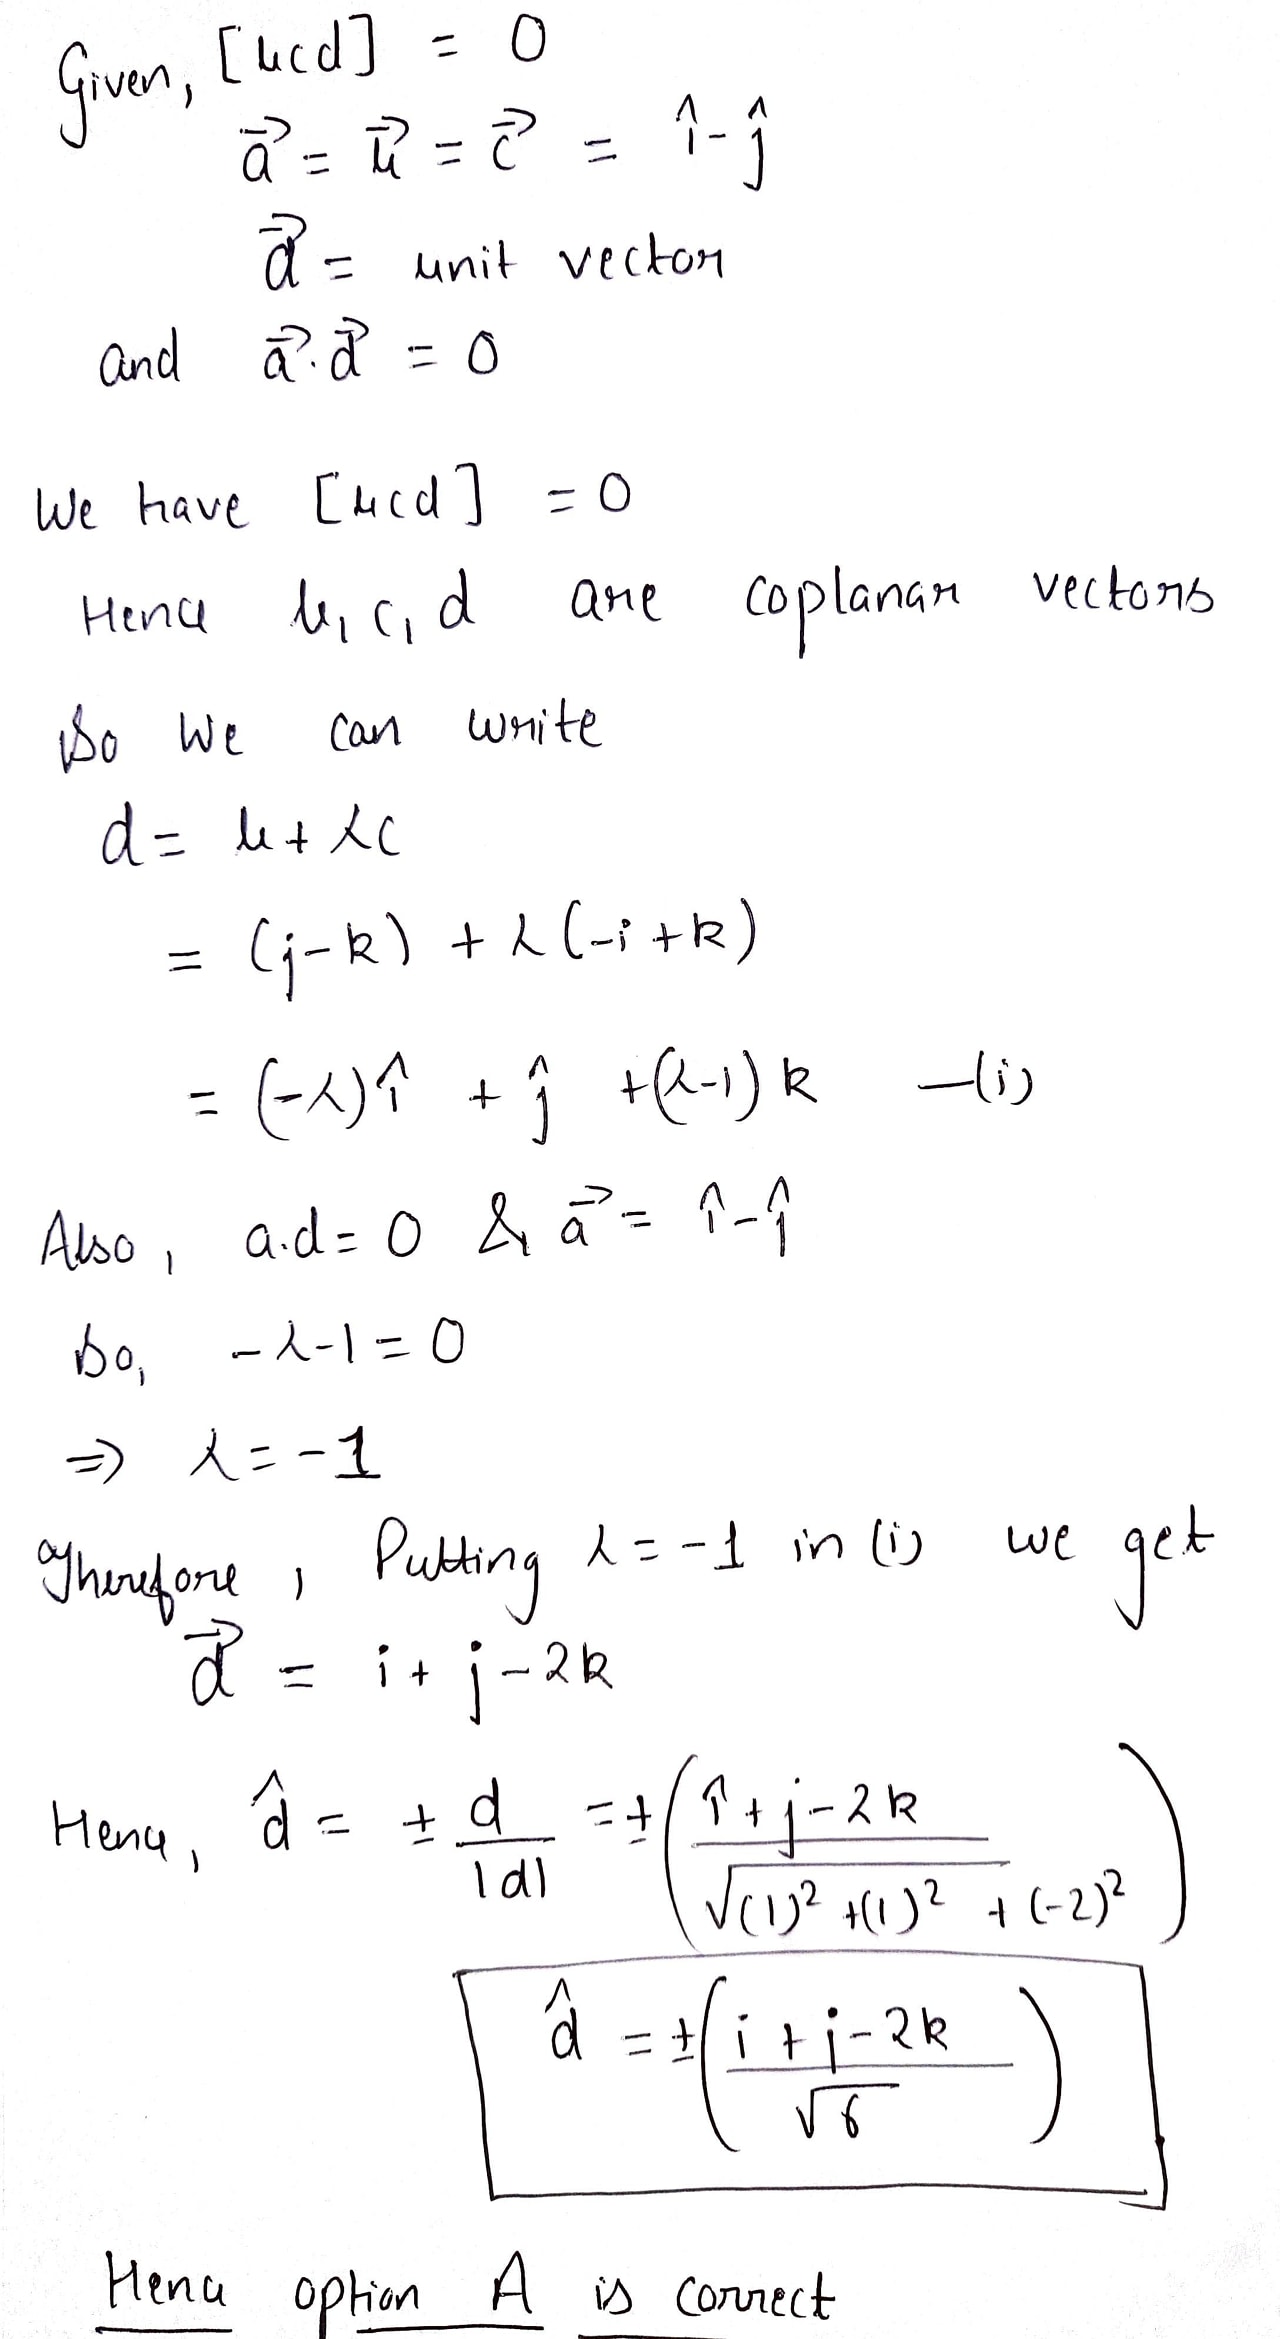 Given, [bcd] = 0
a⃗ = b⃗ = c⃗ = î - ĵ
d⃗ = unit vector
and a⃗.d⃗ = 0
We have [bcd] = 0
Hence b, c, d are coplanar vectors
So we can write
d = b + λc
= (j-k) + λ(-i+k)
= (-λ)î + ĵ + (λ-1)k —(i)
Also, a.d = 0 & a⃗ = î - ĵ
So, -λ-1 = 0
⇒ λ = -1
Therefore, Putting λ = -1 in (i) we get
d⃗ = i + j - 2k
Hence, d̂ = ± d/|d| = ± ( (î + j - 2k) / √((1)² + (1)² + (-2)²) )
d̂ = ± ( (i + j - 2k) / √6 )
Hence option A is correct